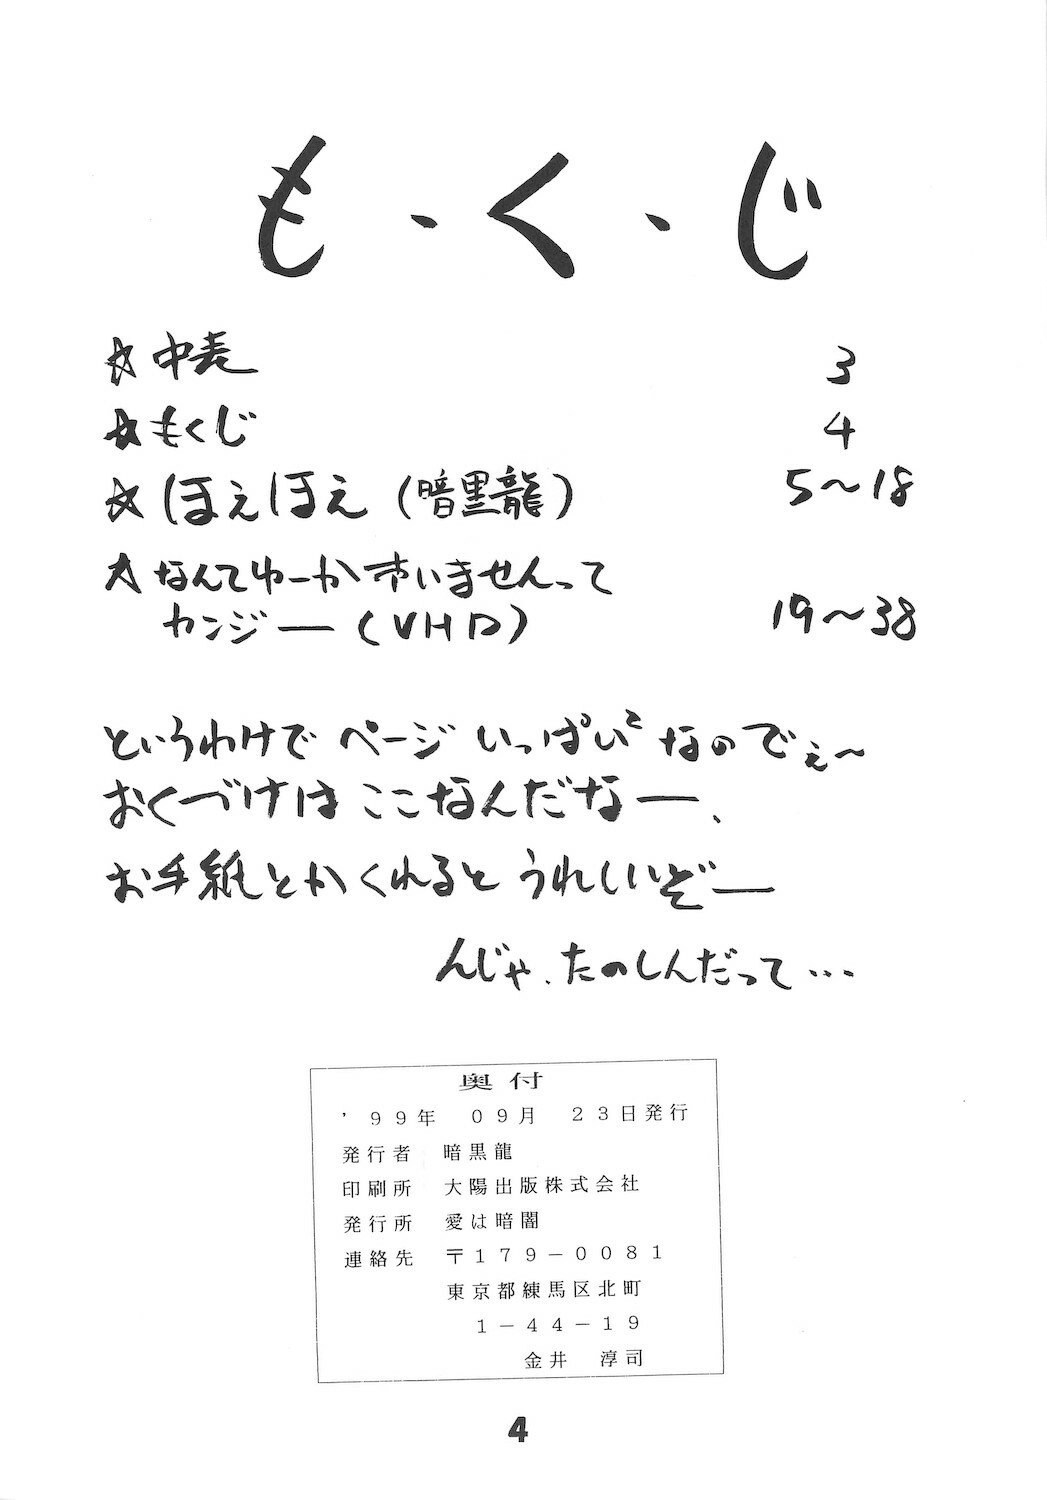 も、く、じ
☆中表 3
☆もくじ 4
☆ほぇほぇ(暗黒龍) 5〜18
☆なんてゆーか すいませんって
カンジー(VHD) 19〜38
というわけで ページ いっぱい²なのでぇ〜
おくづけは ここなんだなー、
お手紙とかくれると うれしいぞー
んじゃ、たのしんだって…
奥付
’99年 09月 23日発行
発行者 暗黒龍
印刷所 大陽出版株式会社
発行所 愛は暗闇
連絡先 〒179−0081
東京都練馬区北町
1−44−19
金井 淳司
4